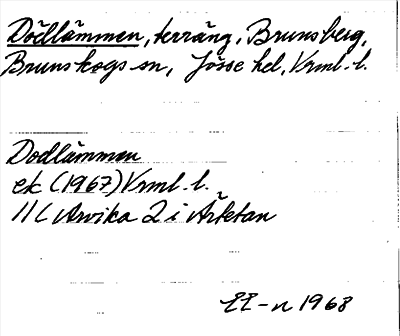 Dödlämmen, terräng, Brunsberg,
Brunskogs sn, Jösse hd, Vrml. l.
Dodlämmen
ek (1967) Vrml. l.
11C Arvika 2 i Årletan
EE-n 1968